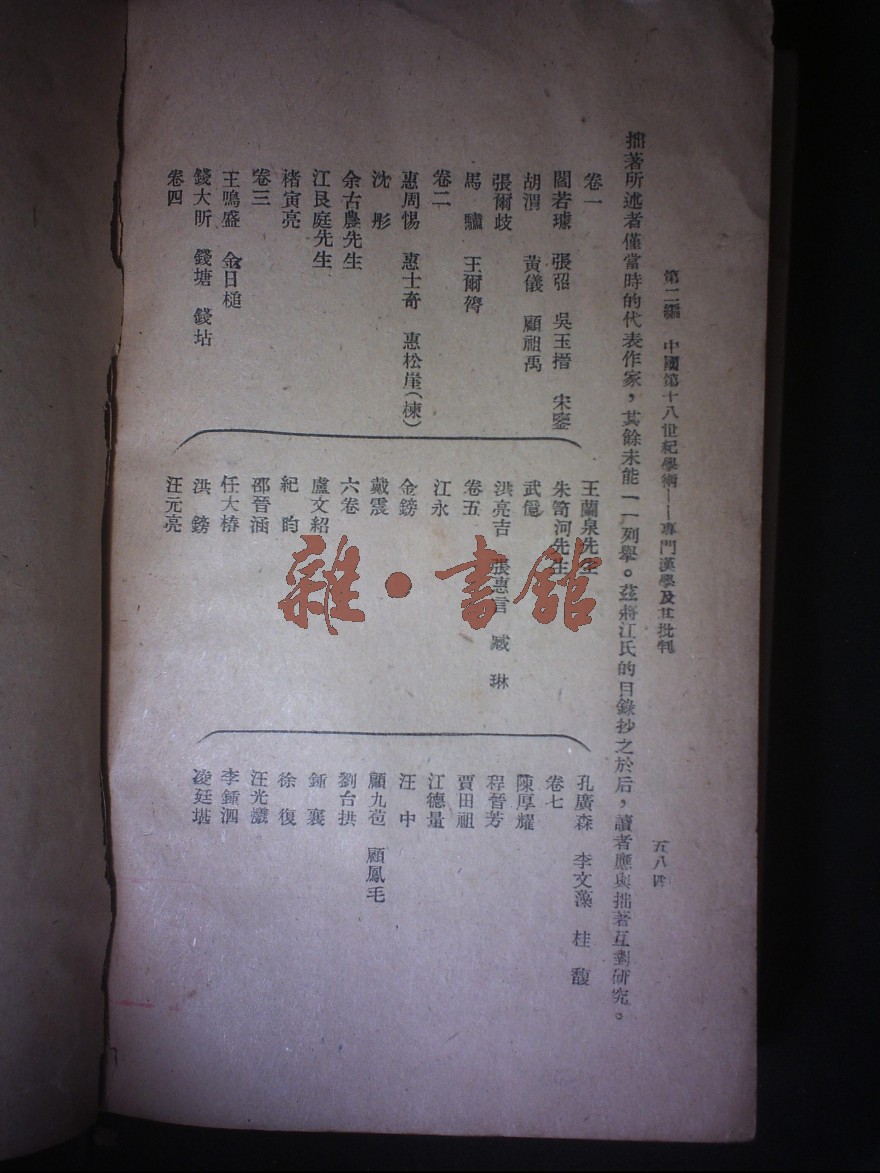 第二編　中國第十八世紀學術——專門漢學及其批判
五八四
拙著所述者僅當時的代表作家，其餘未能一一列舉。茲將江氏的目錄抄之於后，讀者應與拙著互對研究。
卷一
閻若璩　張弨　吳玉搢　宋鑒
胡渭　黃儀　顧祖禹
張爾歧
馬驌　王爾膂
卷二
惠周惕　惠士奇　惠松崖（棟）
沈彤
余古農先生
江艮庭先生
褚寅亮
卷三
王鳴盛　金日槌
錢大昕　錢塘　錢坫
卷四
王蘭泉先生
朱笥河先生
武億
洪亮吉　張惠言　臧琳
卷五
江永
金鎊
戴震
六卷
盧文紹
紀昀
邵晉涵
任大椿
洪鎊
汪元亮
孔廣森　李文藻　桂馥
卷七
陳厚耀
程晉芳
賈田祖
江德量
汪中
顧九苞　顧鳳毛
劉台拱
鍾襄
徐復
汪光爔
李鍾泗
凌廷堪
雜·書館